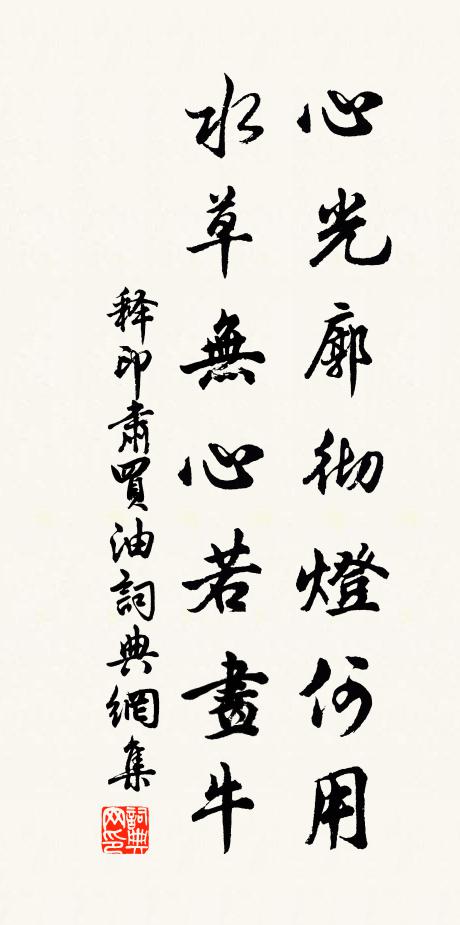 心光廓彻燈何用
水草無心若畫牛
释印肅買油詞典網集
詞典网印